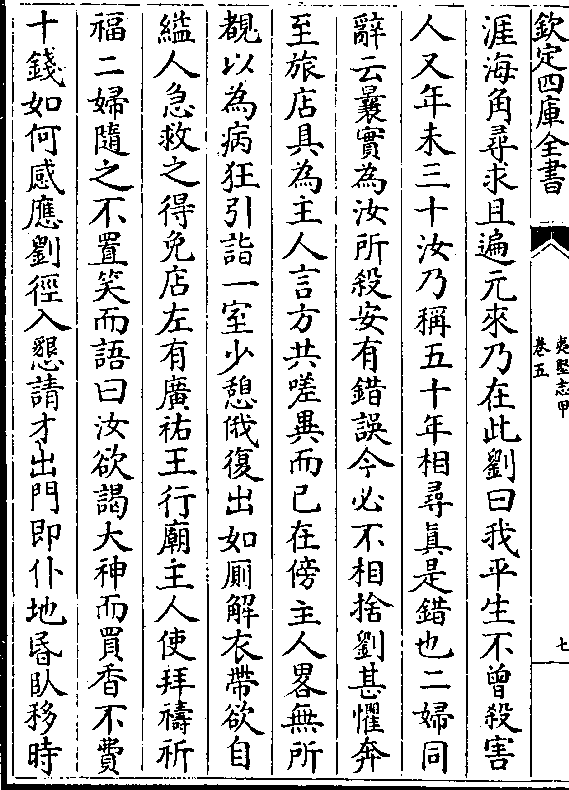 欽定四庫全書
夷堅志甲
卷五
七
涯海角尋求且遍元來乃在此劉曰我平生不曾殺害
人又年未三十汝乃稱五十年相尋真是錯也二婦同
辭云曩實為汝所殺安有錯誤今必不相捨劉甚懼奔
至旅店具為主人言方共嗟異而已在傍主人畧無所
覩以為病狂引詣一室少憩俄復出如厠解衣帶欲自
縊人急救之得免店左有廣祐王行廟主人使拜禱祈
福二婦隨之不置笑而語曰汝欲謁大神而買香不費
十錢如何感應劉徑入懇請才出門即仆地昬臥移時